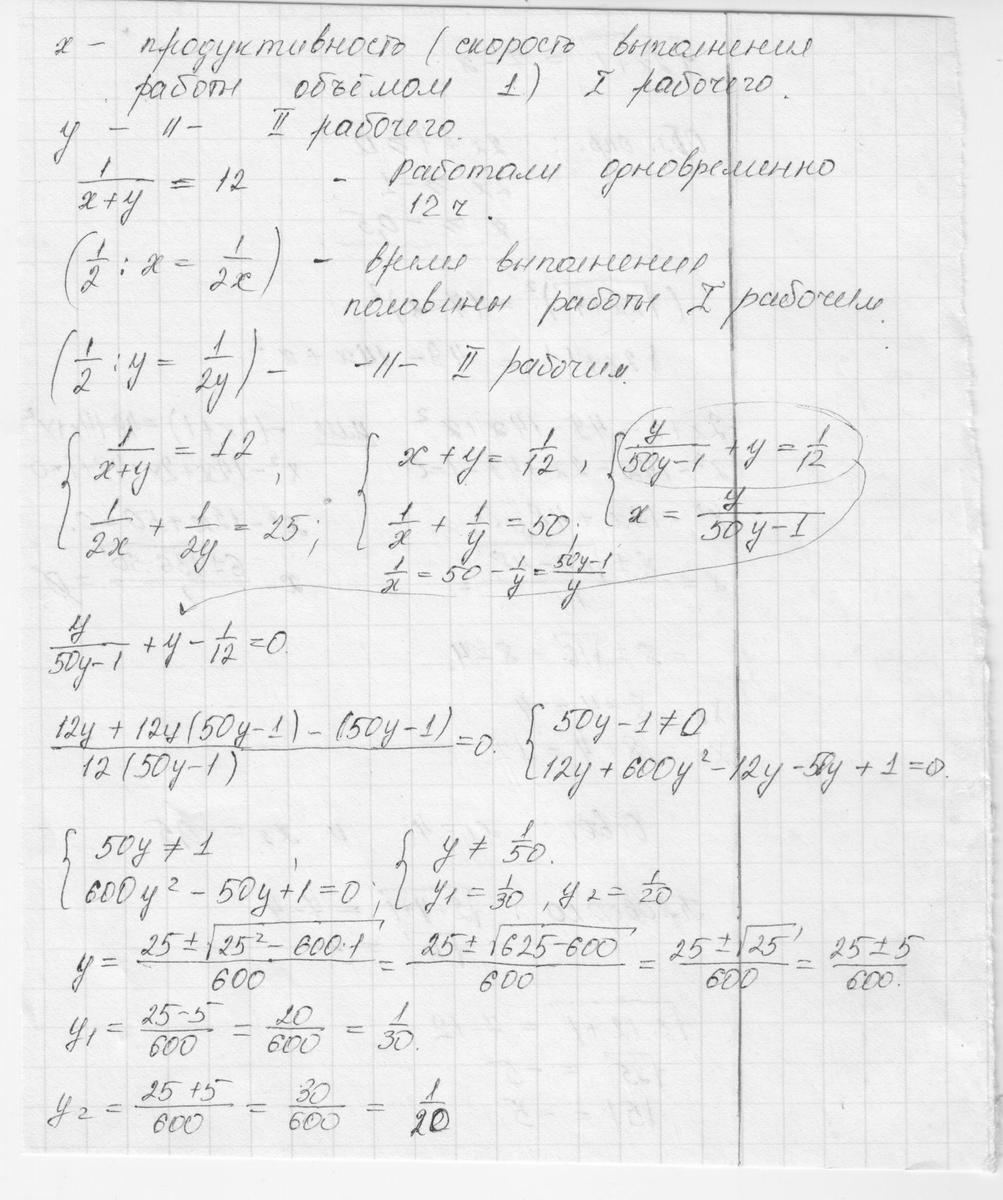 x – продуктивность (скорость выполнения
работы объёмом 1) I рабочего.
y – –II– II рабочего.
1/(x+y) = 12 - Работали одновременно
12 ч.
(1/2 : x = 1/2x) - время выполнения
половины работы I рабочим.
(1/2 : y = 1/2y) - -II- II рабочим.
{ 1/(x+y) = 12, { x + y = 1/12, { y/(50y-1) + y = 1/12
1/2x + 1/2y = 25; 1/x + 1/y = 50; x = y/(50y-1)
1/x = 50 - 1/y = (50y-1)/y
y/(50y-1) + y - 1/12 = 0.
(12y + 12y(50y-1) - (50y-1))/(12(50y-1)) = 0. { 50y-1≠0
12y+600y²-12y-50y+1=0.
{ 50y ≠ 1, { y ≠ 1/50.
600y² - 50y+1=0; y1 = 1/30, y2 = 1/20
y = (25 ± √(25² - 600·1))/600 = (25 ± √(625-600))/600 = (25 ± √25)/600 = (25 ± 5)/600.
y1 = (25-5)/600 = 20/600 = 1/30.
y2 = (25+5)/600 = 30/600 = 1/20